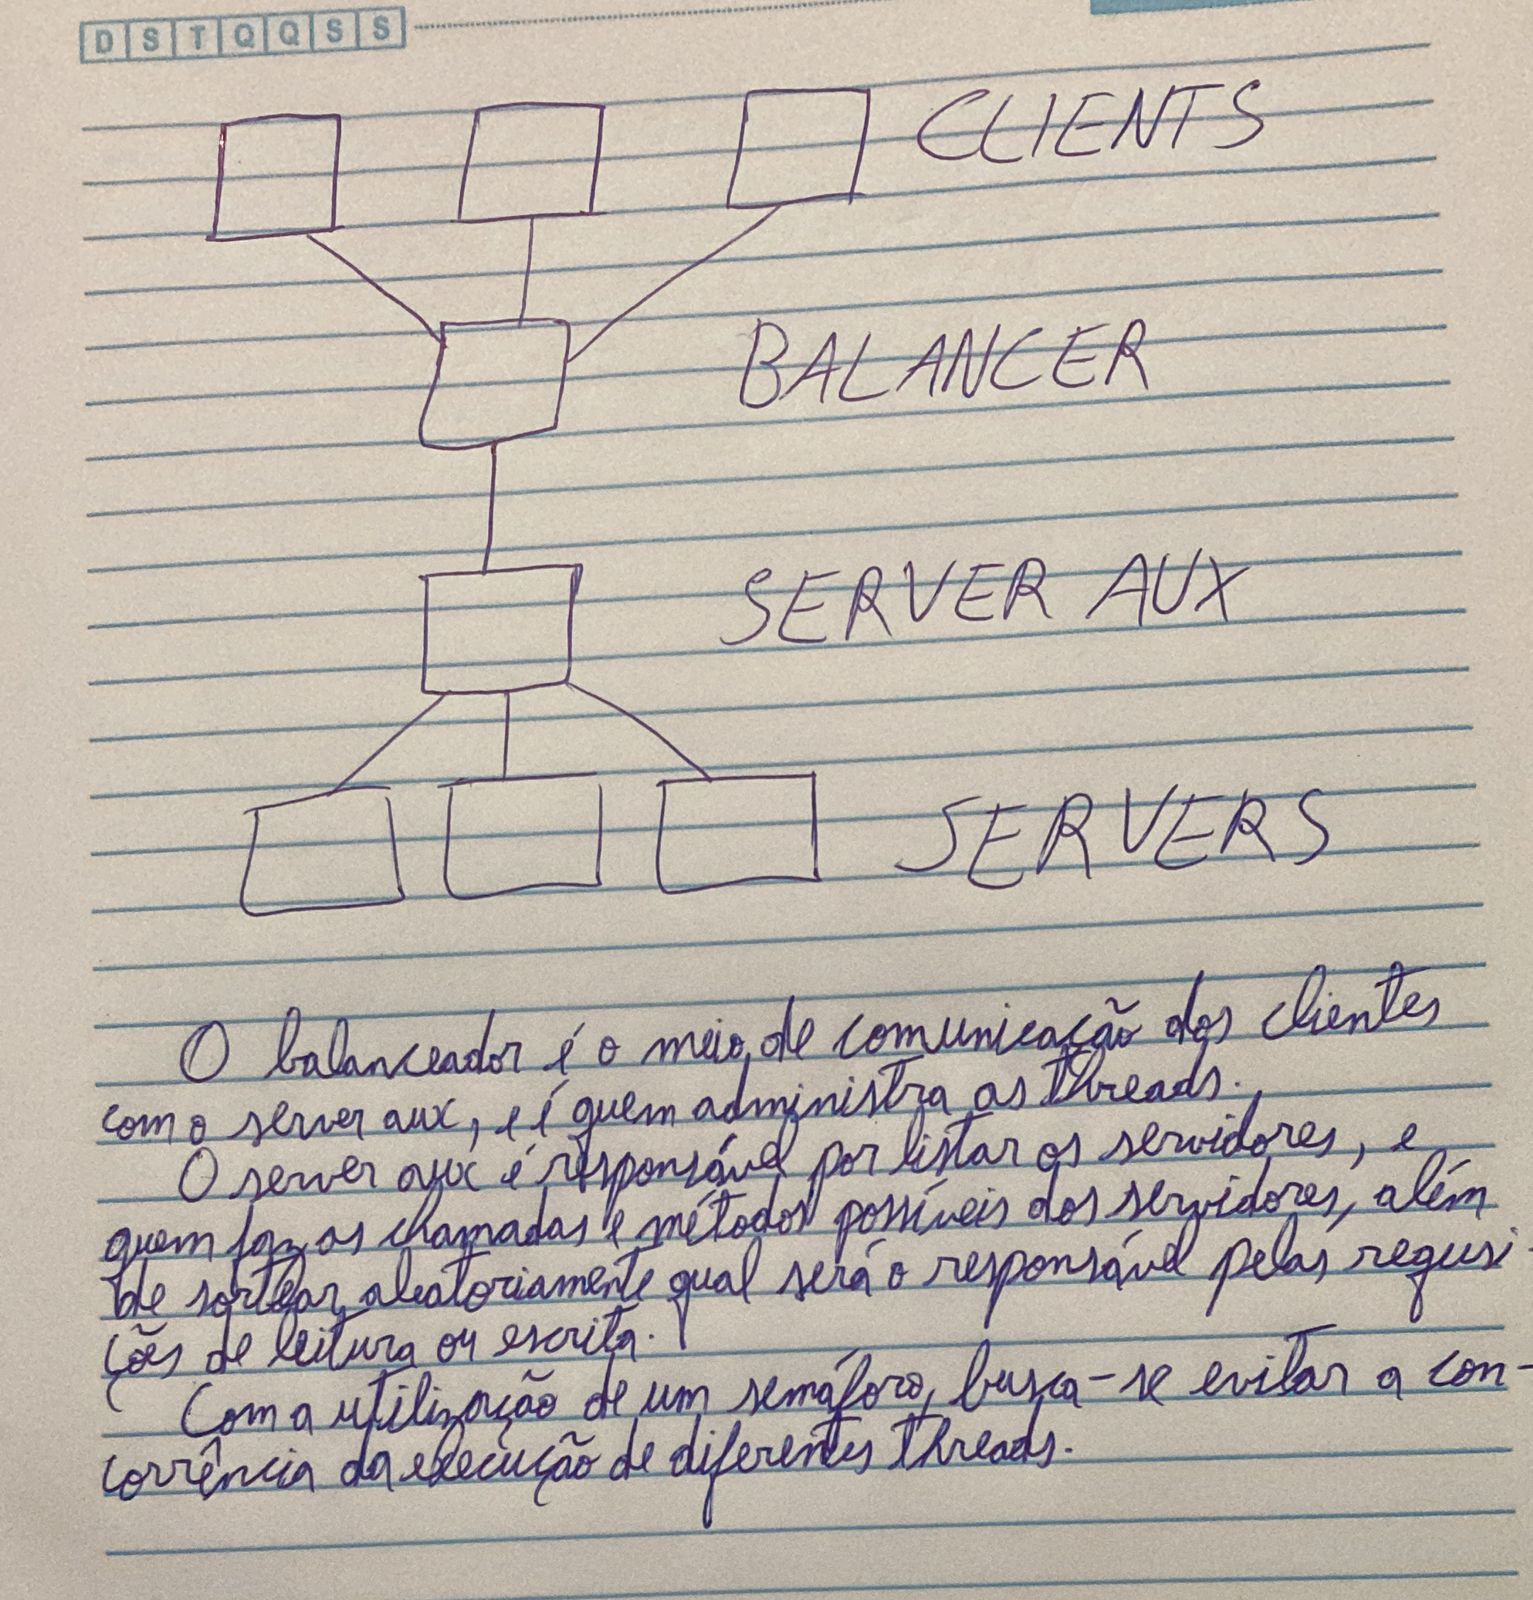 D S T Q Q S S
CLIENTS
BALANCER
SERVER AUX
SERVERS
O balanceador é o meio de comunicação dos clientes
com o server aux, e é quem administra as threads.
O server aux é responsável por listar os servidores, e
quem faz as chamadas e métodos possíveis dos servidores, além
de sortear aleatoriamente qual será o responsável pelas requisi-
ções de leitura ou escrita.
Com a utilização de um semáforo, busca-se evitar a con-
corrência da execução de diferentes threads.